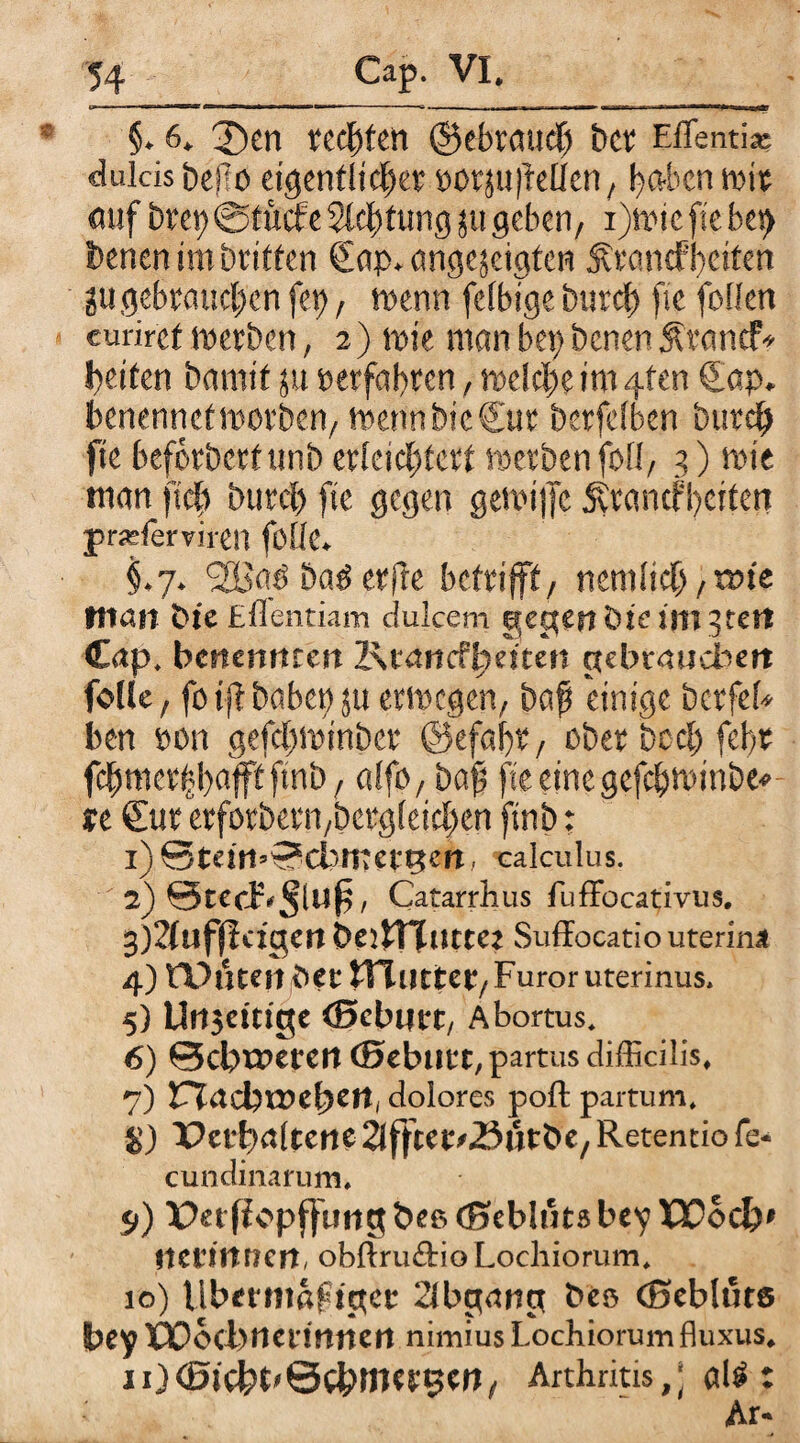 54 Cap. VI.
§. 6. Den rechten Gebrauch der Essentiæ
dulcis desto eigentlicher vorzustellen, haben wir
auf drey Stücke Achtung zu geben, 1) wie sie bey
denen im dritten Cap. angezeigten Kranckheiten
zu gebrauchen sey, wenn selbige durch sie sollen
curiret werden, 2) wie man bey denen Kranck-
heiten damit zu verfahren, welche im 4ten Cap.
benennet worden, wenn die Cur derselben durch
sie befördert und erleichtert werden soll, 3) wie
man sich durch sie gegen gewisse Kranckheiten
præserviren solle.
§. 7. Was das erste betrifft, nemlich, wie
man die Essentiam dulcem gegen die im 3ten
Cap. benennten Kranckheiten gebrauchen
solle, so ist dabey zu erwegen, daß einige dersel-
ben von geschwinder Gefahr, oder doch sehr
schmertzhafft sind, also, daß sie eine geschwinde-
re Cur erfordern, dergleichen sind:
1) Stein-Schmertzen, calculus.
2) Steck-Fluß, Catarrhus suffocativus.
3) Auffsteigen der Mutter Suffocatio uterina
4) Wüten der Mutter, Furor uterinus.
5) Unzeitige Geburt, Abortus.
6) Schweren Geburt, partus difficilis.
7) Nachwehen, dolores post partum.
8) Verhaltene Affter-Bürde, Retentio se-
cundinarum.
9) Verstopffung des Geblüts bey Wöch-
nerinnen, obstructio Lochiorum.
10) Übermäßiger Abgang des Geblüts
bey Wöchnerinnen nimius Lochiorum fluxus.
11) Gicht-Schmertzen, Arthritis, als:
Ar-